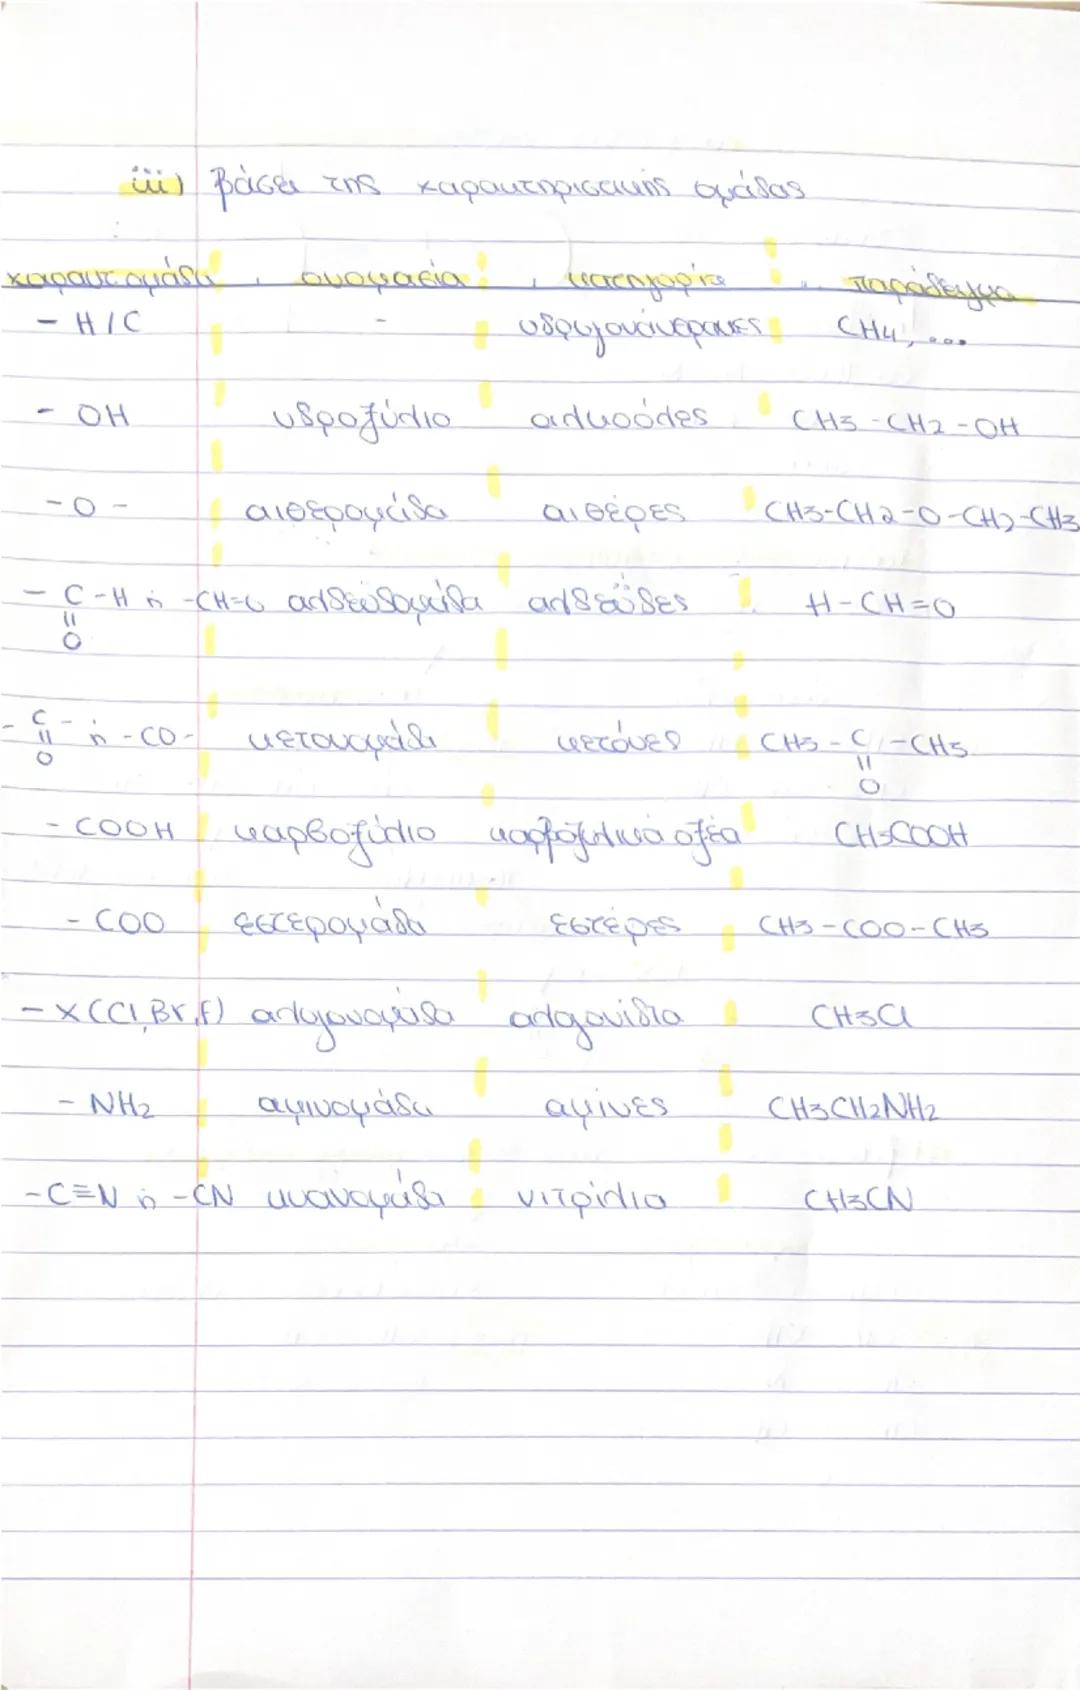 iii) βάσει της χαρακτηριστικής ομάδας
χαρακτ. ομάδα ονομασία κατηγορία παράδειγμα
- H/C - υδρογονάνθρακες CH4, ...
- OH υδροξύλιο αλκοόλες CH3-CH2-OH
-O- αιθερομάδα αιθέρες CH3-CH2-O-CH2-CH3
- C -H ή -CH=O αλδεϋδομάδα αλδεΰδες H-CH=O
||
O
- C - ή -CO- κετονομάδα κετόνες CH3 - C -CH3
|| ||
O O
- COOH καρβοξύλιο καρβοξυλικά οξέα CH3COOH
- COO εστερομάδα εστέρες CH3-COO-CH3
- X (Cl, Br, F) αλογονομάδα αλογονίδια CH3Cl
- NH2 αμινομάδα αμίνες CH3CH2NH2
-C≡N ή -CN κυανομάδα νιτρίλια CH3CN